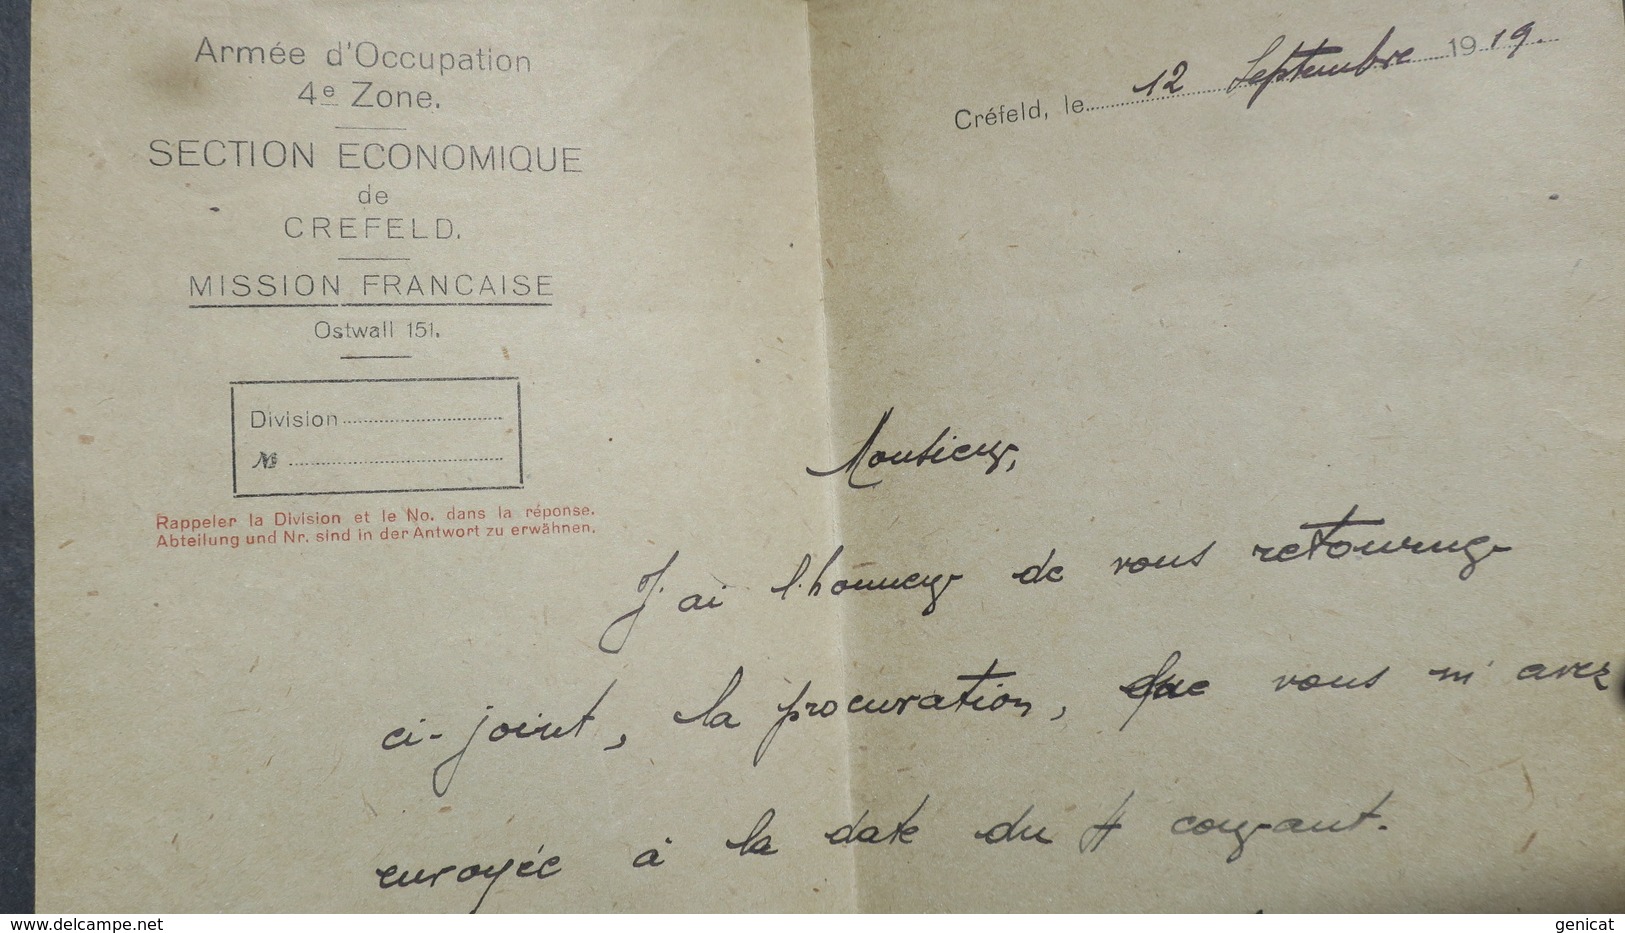 Armée d'Occupation
4e Zone.
SECTION ECONOMIQUE
de
CREFELD.
MISSION FRANCAISE
Ostwall 151.
Division
No
Rappeler la Division et le No. dans la réponse.
Abteilung und Nr. sind in der Antwort zu erwähnen.
Créfeld, le 12 Septembre 1919.
Monsieur,
J'ai l'honneur de vous retourner
ci-joint, la procuration, que vous m'avez
envoyée à la date du 4 courant.
genicat